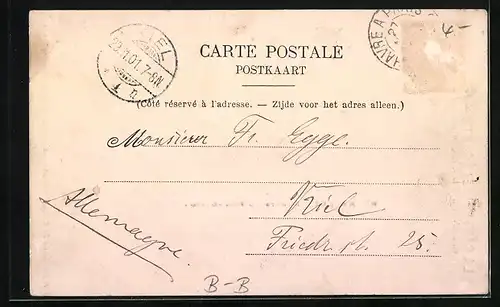 KIEL
22.1.01.7-8N
HAVRE A PARIS
4-
CARTE POSTALE
POSTKAART
(Côté réservé à l'adresse. — Zijde voor het adres alleen.)
Monsieur Fr. Egge.
Kiel
Allemagne
Friedr. str. 25.
B-B